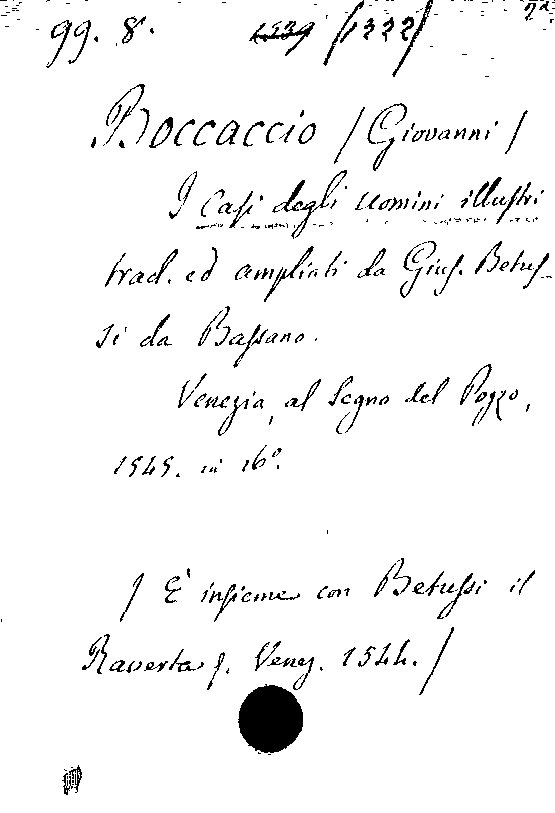 99. 8. 1539 /1322/ 2a.
Boccaccio /Giovanni/
I Casi degli Uomini illustri
trad. ed ampliati da Gius. Betus-
si da Bassano.
Venezia, al Segno del Pozzo,
1545. in 16º.
/ È insieme con Betussi il
Raverta &. Venez. 1544./